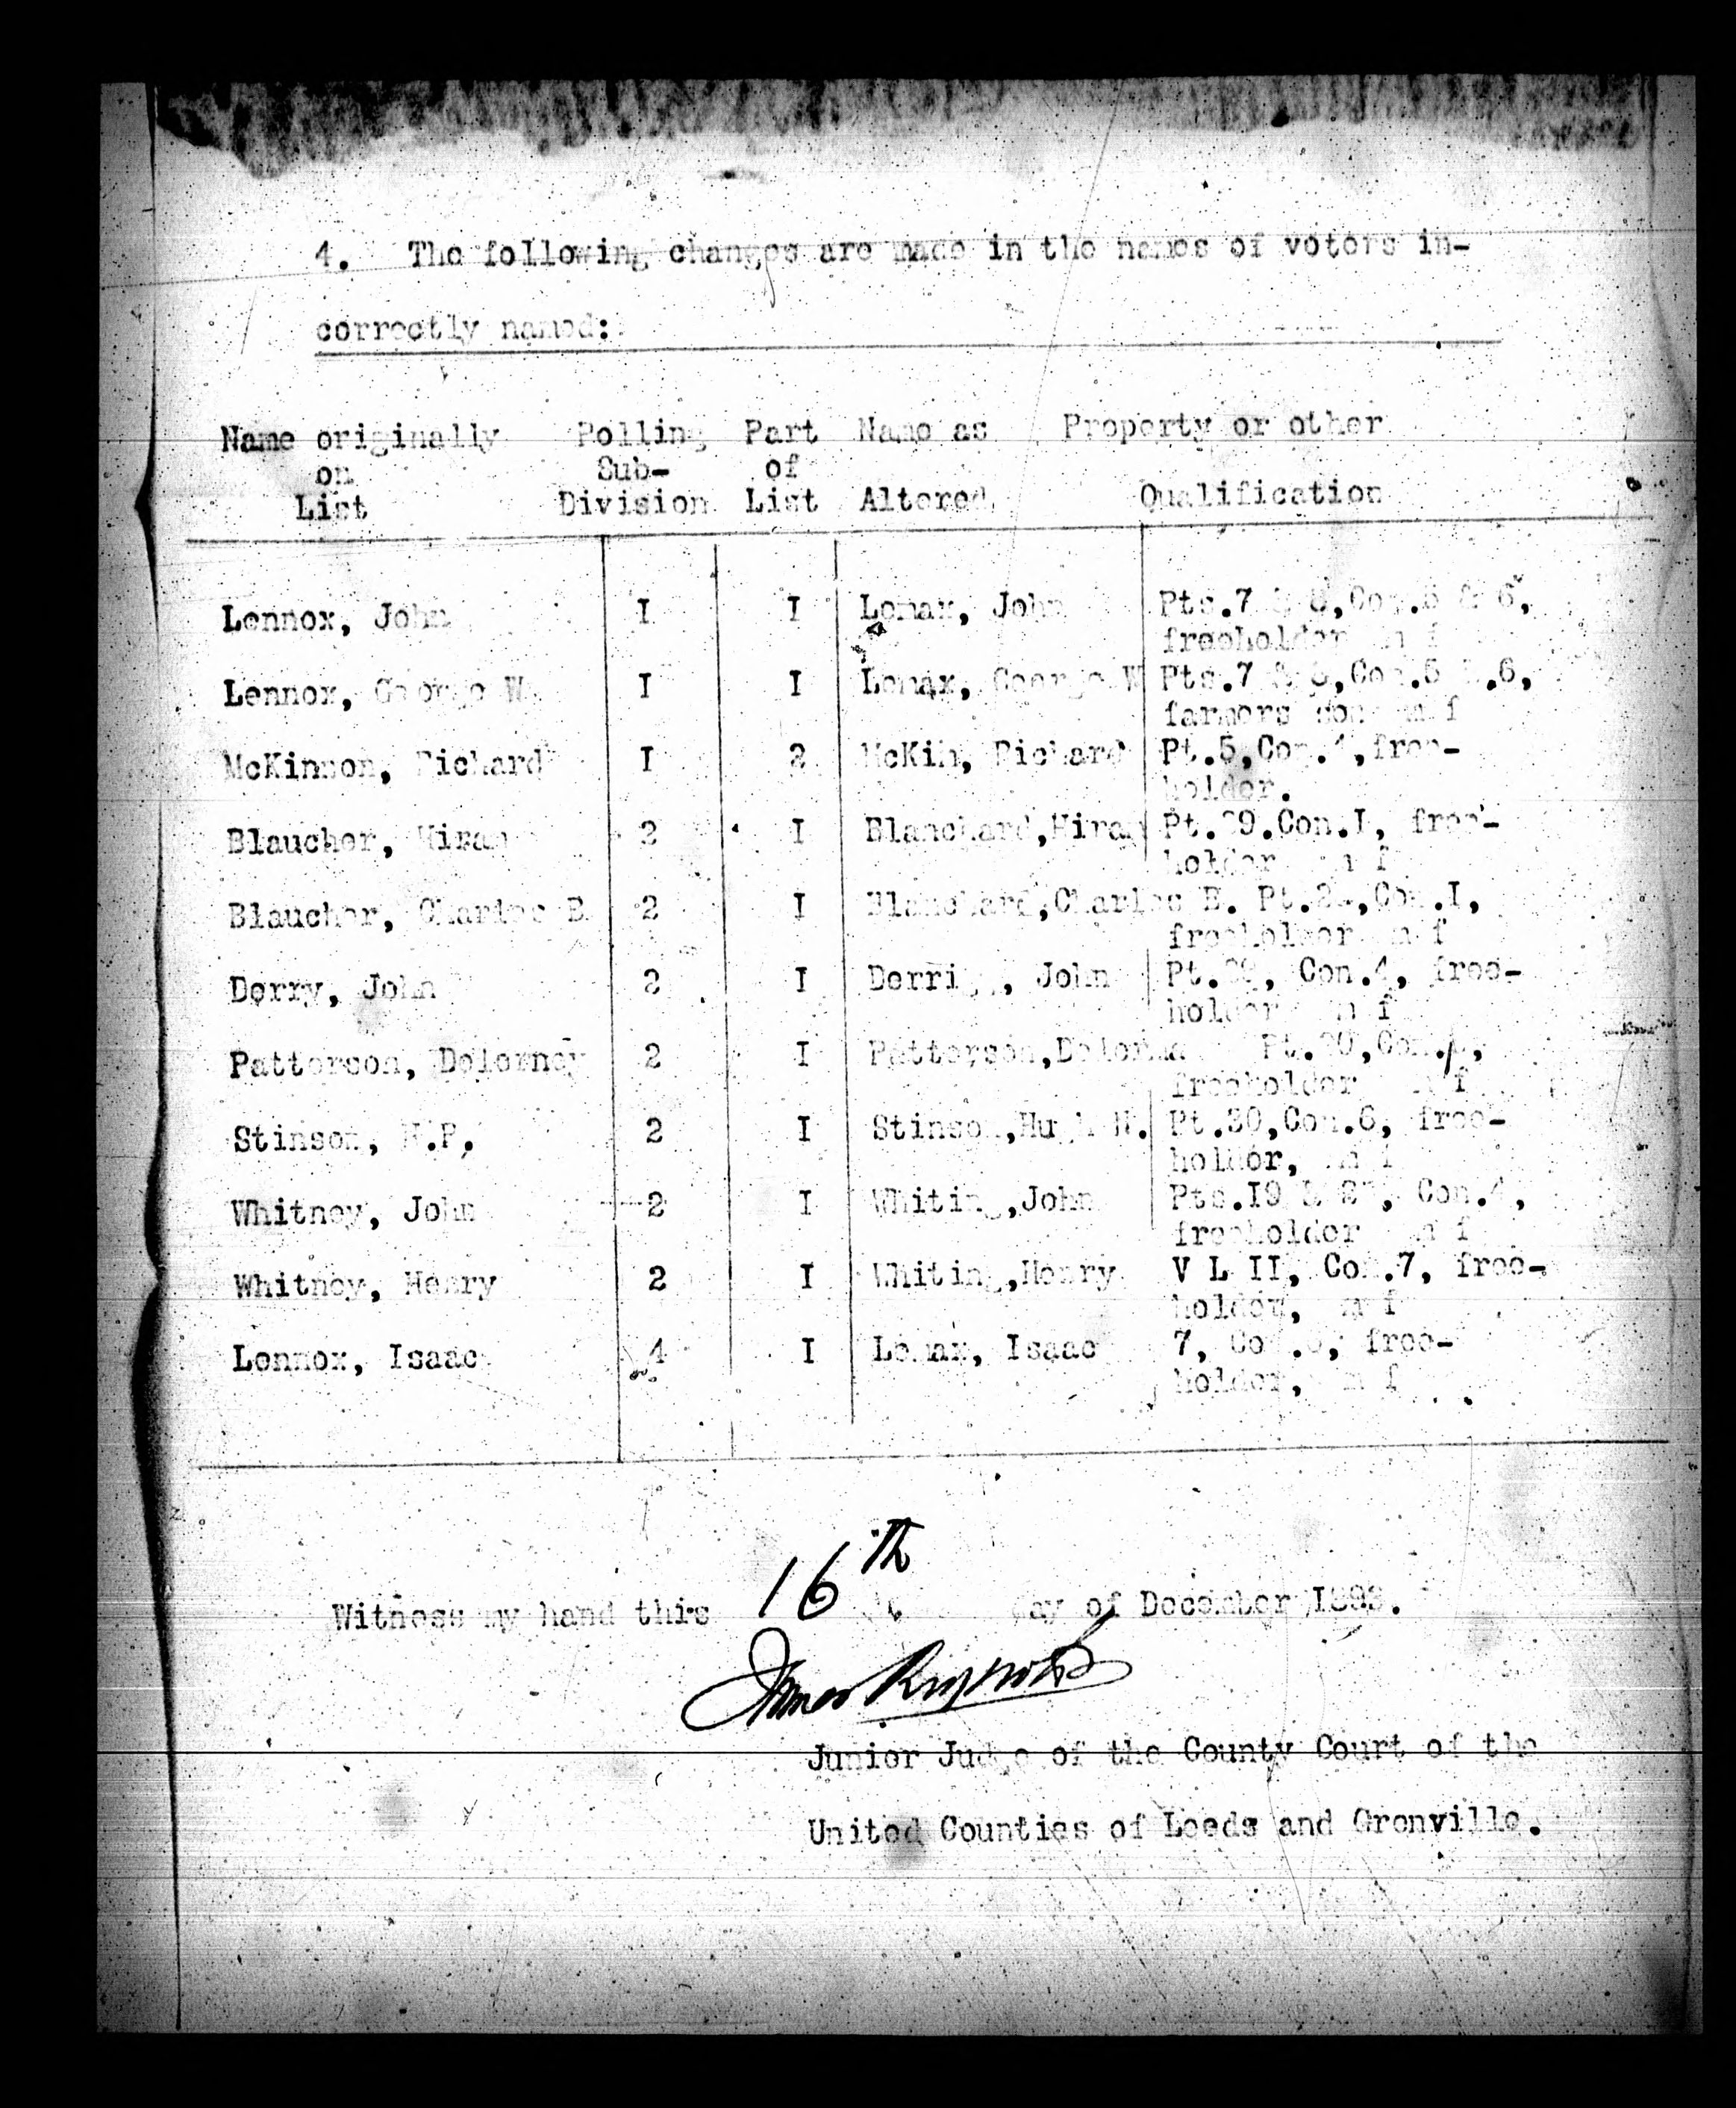 4. The following changes are made in the names of voters in-
correctly named:
Name originally Polling Part Name as Property or other
on Sub- of
List Division List Altered Qualification
Lennox, John I I Lomax, John Pts.7 & 8,Con.5 & 6,
freeholder m f
Lennox, George W. I I Lomax, George W Pts.7 & 8,Con.5 & 6,
farmers son m f
McKinnon, Richard I 2 McKim, Richard Pt.5,Con.4,free-
holder.
Blaucher, Hiram 2 I Blanchard,Hiram Pt.29.Con.I, free-
holder m f
Blaucher, Charles E. 2 I Blanchard,Charles E. Con.I,
freeholder m f
Derry, John 2 I John Con.4, free-
holder m f
Patterson, Delorney 2 I Patterson, freeholder m f
Stinson, 2 I Stinson,Hugh Pt.30,Con.6, free-
holder, m f
Whitney, John 2 I Whiting,John Pts.19 & Con.4,
freeholder m f
Whitney, Henry 2 I Whiting,Henry V L II, Con.7, free-
holder, m f
Lennox, Isaac 4 I Lomax, Isaac 7, free-
holder, m f
Witness my hand this 16th day of December 1893.
James Reynolds
Junior Judge of the County Court of the
United Counties of Leeds and Grenville.